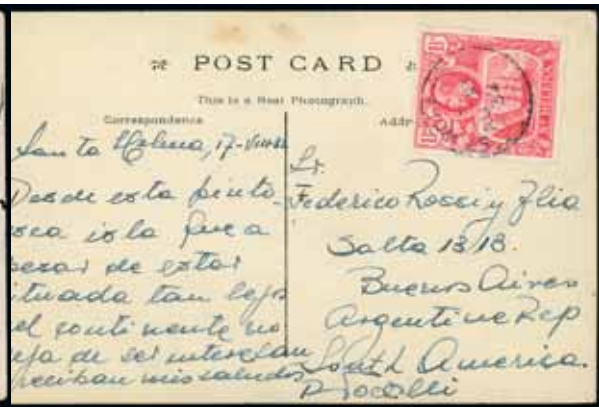 POST CARD
This is a Real Photograph.
Correspondence
Santa Helena, 17-
Desde esta pinto-
sca isla que a
pesar de estar
ituada tan lejos
el continente no
eja de ser interesan
reciban mis saludos
Addr
Sr.
Federico Rossi y Flia
Salta 1313.
Buenos Aires
Argentine Rep
South America.